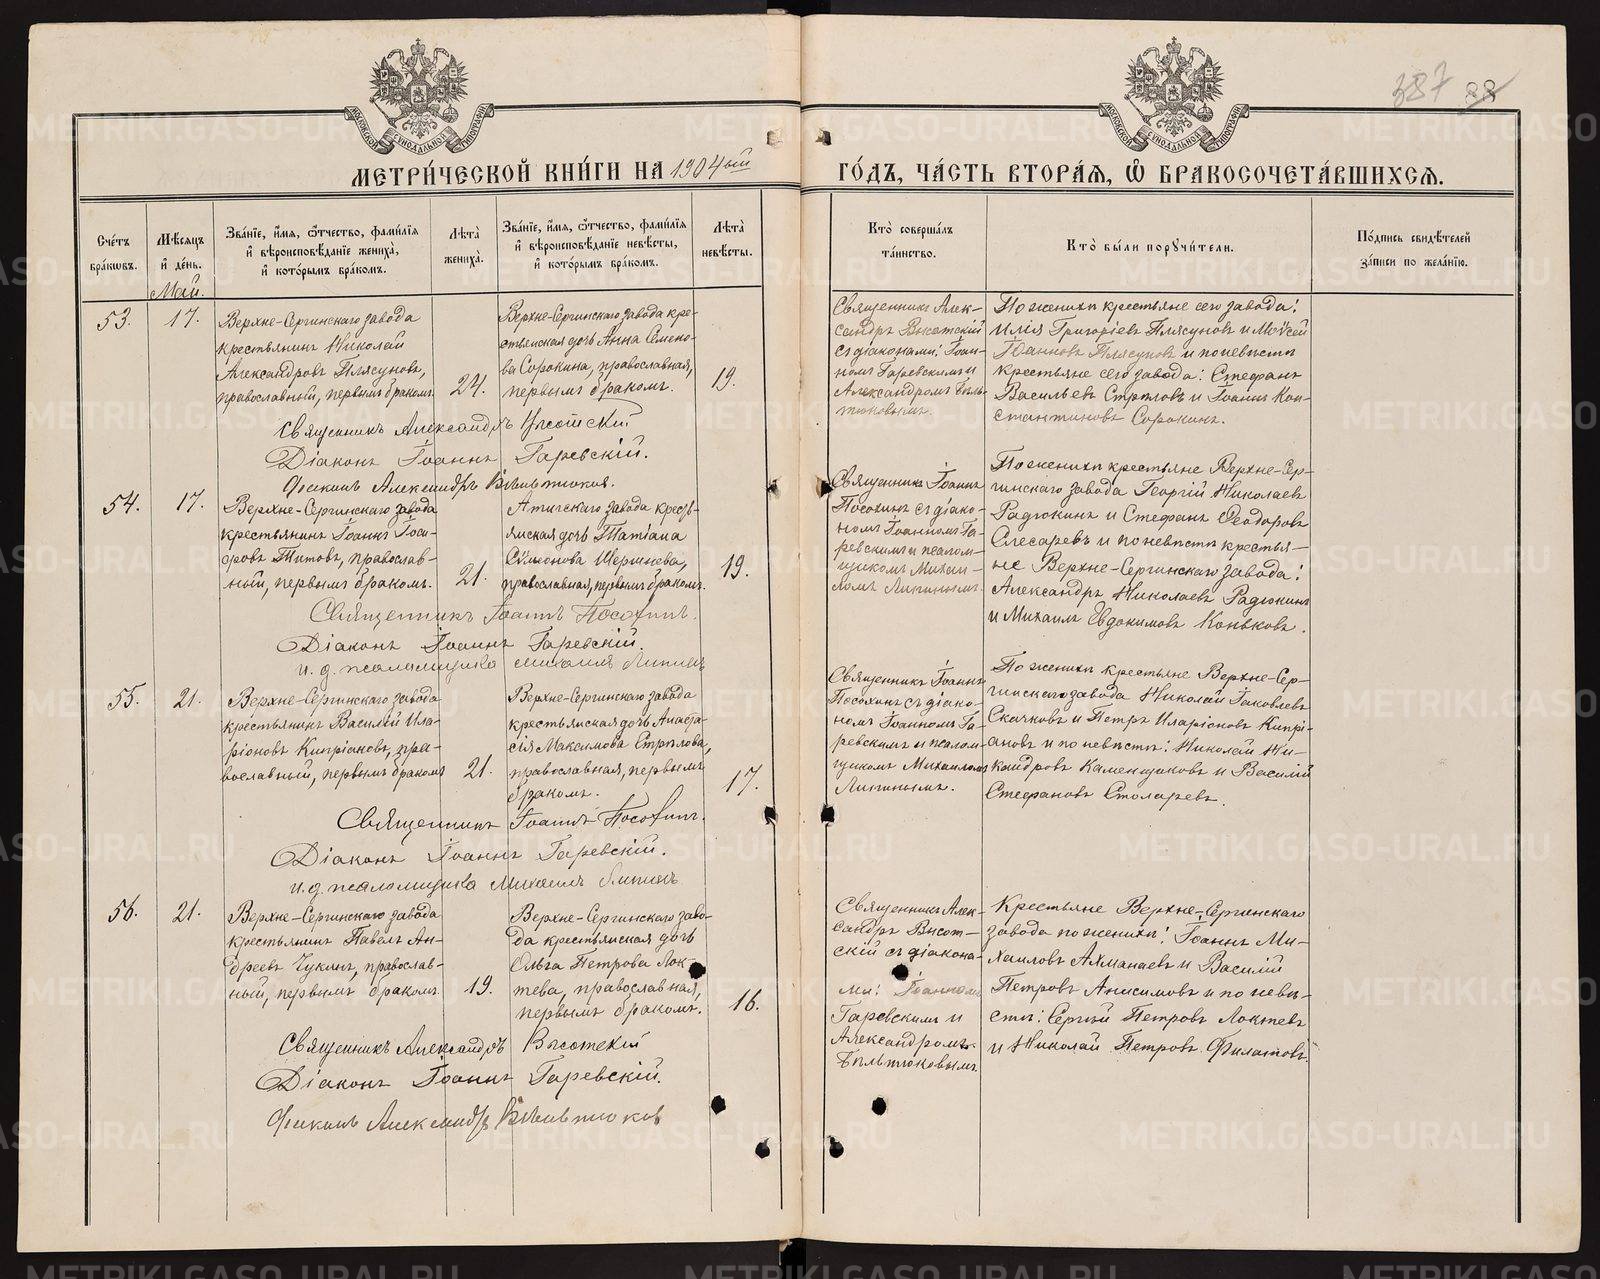 387 88
МОСКОВСКОЙ СѴНОДАЛЬНОЙ ТИПОГРАФІИ
МОСКОВСКОЙ СѴНОДАЛЬНОЙ ТИПОГРАФІИ
МЕТРИ́ЧЕСКОЙ КНИ́ГИ НА 1904ый
ГО́ДЪ, ЧА́СТЬ ВТОРА́Я, Ѽ БРАКОСОЧЕТА́ВШИХСЯ.
Сче́тъ
бра́кѡвъ.
Мѣ́сяцъ
и҆ де́нь.
Май.
Зва́нїе, и҆́мя, ѻ҆́тчество, фами́лїя
и҆ вѣроисповѣ́данїе жениха̀,
и҆ кото́рымъ бра́комъ.
Лѣ́та
жениха̀.
Зва́нїе, и҆́мя, ѻ҆́тчество, фами́лїя
и҆ вѣроисповѣ́данїе невѣ́сты,
и҆ кото́рымъ бра́комъ.
Лѣ́та
невѣ́сты.
Кто̀ соверша́лъ
та́инство.
Кто̀ бы́ли порꙋчи́тели.
По́дпись свидѣ́телей
за́писи по жела́нїю.
53.
17.
Верхне-Сергинскаго завода
крестьянинъ Николай
Александровъ Плясуновъ,
православный, первымъ бракомъ.
24.
Верхне-Сергинскаго завода кре-
стьянская дочь Анна Семено-
ва Сорокина, православная,
первымъ бракомъ.
19.
Священникъ Алек-
сандръ Высотскій
съ діаконами: Іоан-
номъ Гаревскимъ и
Александромъ Бѣль-
тюковымъ.
По женихѣ крестьяне сего завода:
Илія Григоріевъ Плясуновъ и Моѵсей
Іоанновъ Плясуновъ и по невѣстѣ
крестьяне сего завода: Стефанъ
Васильевъ Стрѣловъ и Іоаннъ Кон-
стантиновъ Сорокинъ.
Священникъ Александръ Высотскій
Діаконъ Іоаннъ Гаревскій.
Діаконъ Александръ Бѣльтюков.
54.
17.
Верхне-Сергинскаго завода
крестьянинъ Іоаннъ Іоси-
фовъ Титовъ, православ-
ный, первымъ бракомъ.
21.
Атигскаго завода кресть-
янская дочь Татіана
Сѵмеонова
православная, первымъ бракомъ.
19.
Священникъ Іоаннъ
Посохинъ съ діако-
номъ Іоанномъ Га-
ревскимъ и псалом-
щикомъ Михаи-
ломъ Липинымъ.
По женихѣ крестьяне Верхне-Сер-
гинскаго завода Георгій Николаевъ
Радюкинъ и Стефанъ Ѳеодоровъ
Слесаревъ и по невѣстѣ крестья-
не Верхне-Сергинскаго завода:
Александръ Николаевъ Радюкинъ
и Михаилъ Евдокимовъ Коньковъ.
Священникъ Іоаннъ Посохинъ.
Діаконъ Іоаннъ Гаревскій.
и. д. псаломщика Михаилъ Липинъ
55.
21.
Верхне-Сергинскаго завода
крестьянинъ Василій Ила-
ріоновъ Кипріановъ, пра-
вославный, первымъ бракомъ
21.
Верхне-Сергинскаго завода
крестьянская дочь Анаста-
сія Максимова Стрѣлова,
православная, первымъ
бракомъ.
17.
Священникъ Іоаннъ
Посохинъ съ діако-
номъ Іоанномъ Га-
ревскимъ и псалом-
щикомъ Михаиломъ
Липинымъ.
По женихѣ крестьяне Верхне-Сер-
гинскаго завода Николай Іаковлевъ
Скачковъ и Петръ Иларіоновъ Кипрі-
ановъ и по невѣстѣ: Николай Ни-
кандровъ Каменщиковъ и Василій
Стефановъ Столаревъ.
Священникъ Іоаннъ Посохинъ.
Діаконъ Іоаннъ Гаревскій.
и. д. псаломщика Михаилъ Липинъ
56.
21.
Верхне-Сергинскаго завода
крестьянинъ Павелъ Ан-
дреевъ Чукинъ, православ-
ный, первымъ бракомъ
19.
Верхне-Сергинскаго заво-
да крестьянская дочь
Ольга Петрова Лок-
тева, православная,
первымъ бракомъ.
16.
Священникъ Алек-
сандръ Высот-
скій съ діакона-
ми: Іоанномъ
Гаревскимъ и
Александромъ
Бѣльтюковымъ
Крестьяне Верхне-Сергинскаго
завода по женихѣ: Іоаннъ Ми-
хаиловъ Ахманаевъ и Василій
Петровъ Анисимовъ и по невѣ-
стѣ: Сергѣй Петровъ Локтевъ
и Николай Петровъ Филатовъ
Священникъ Александръ Высотскій
Діаконъ Іоаннъ Гаревскій.
Діаконъ Александръ Бѣльтюков
METRIKI.GASO-URAL.RU